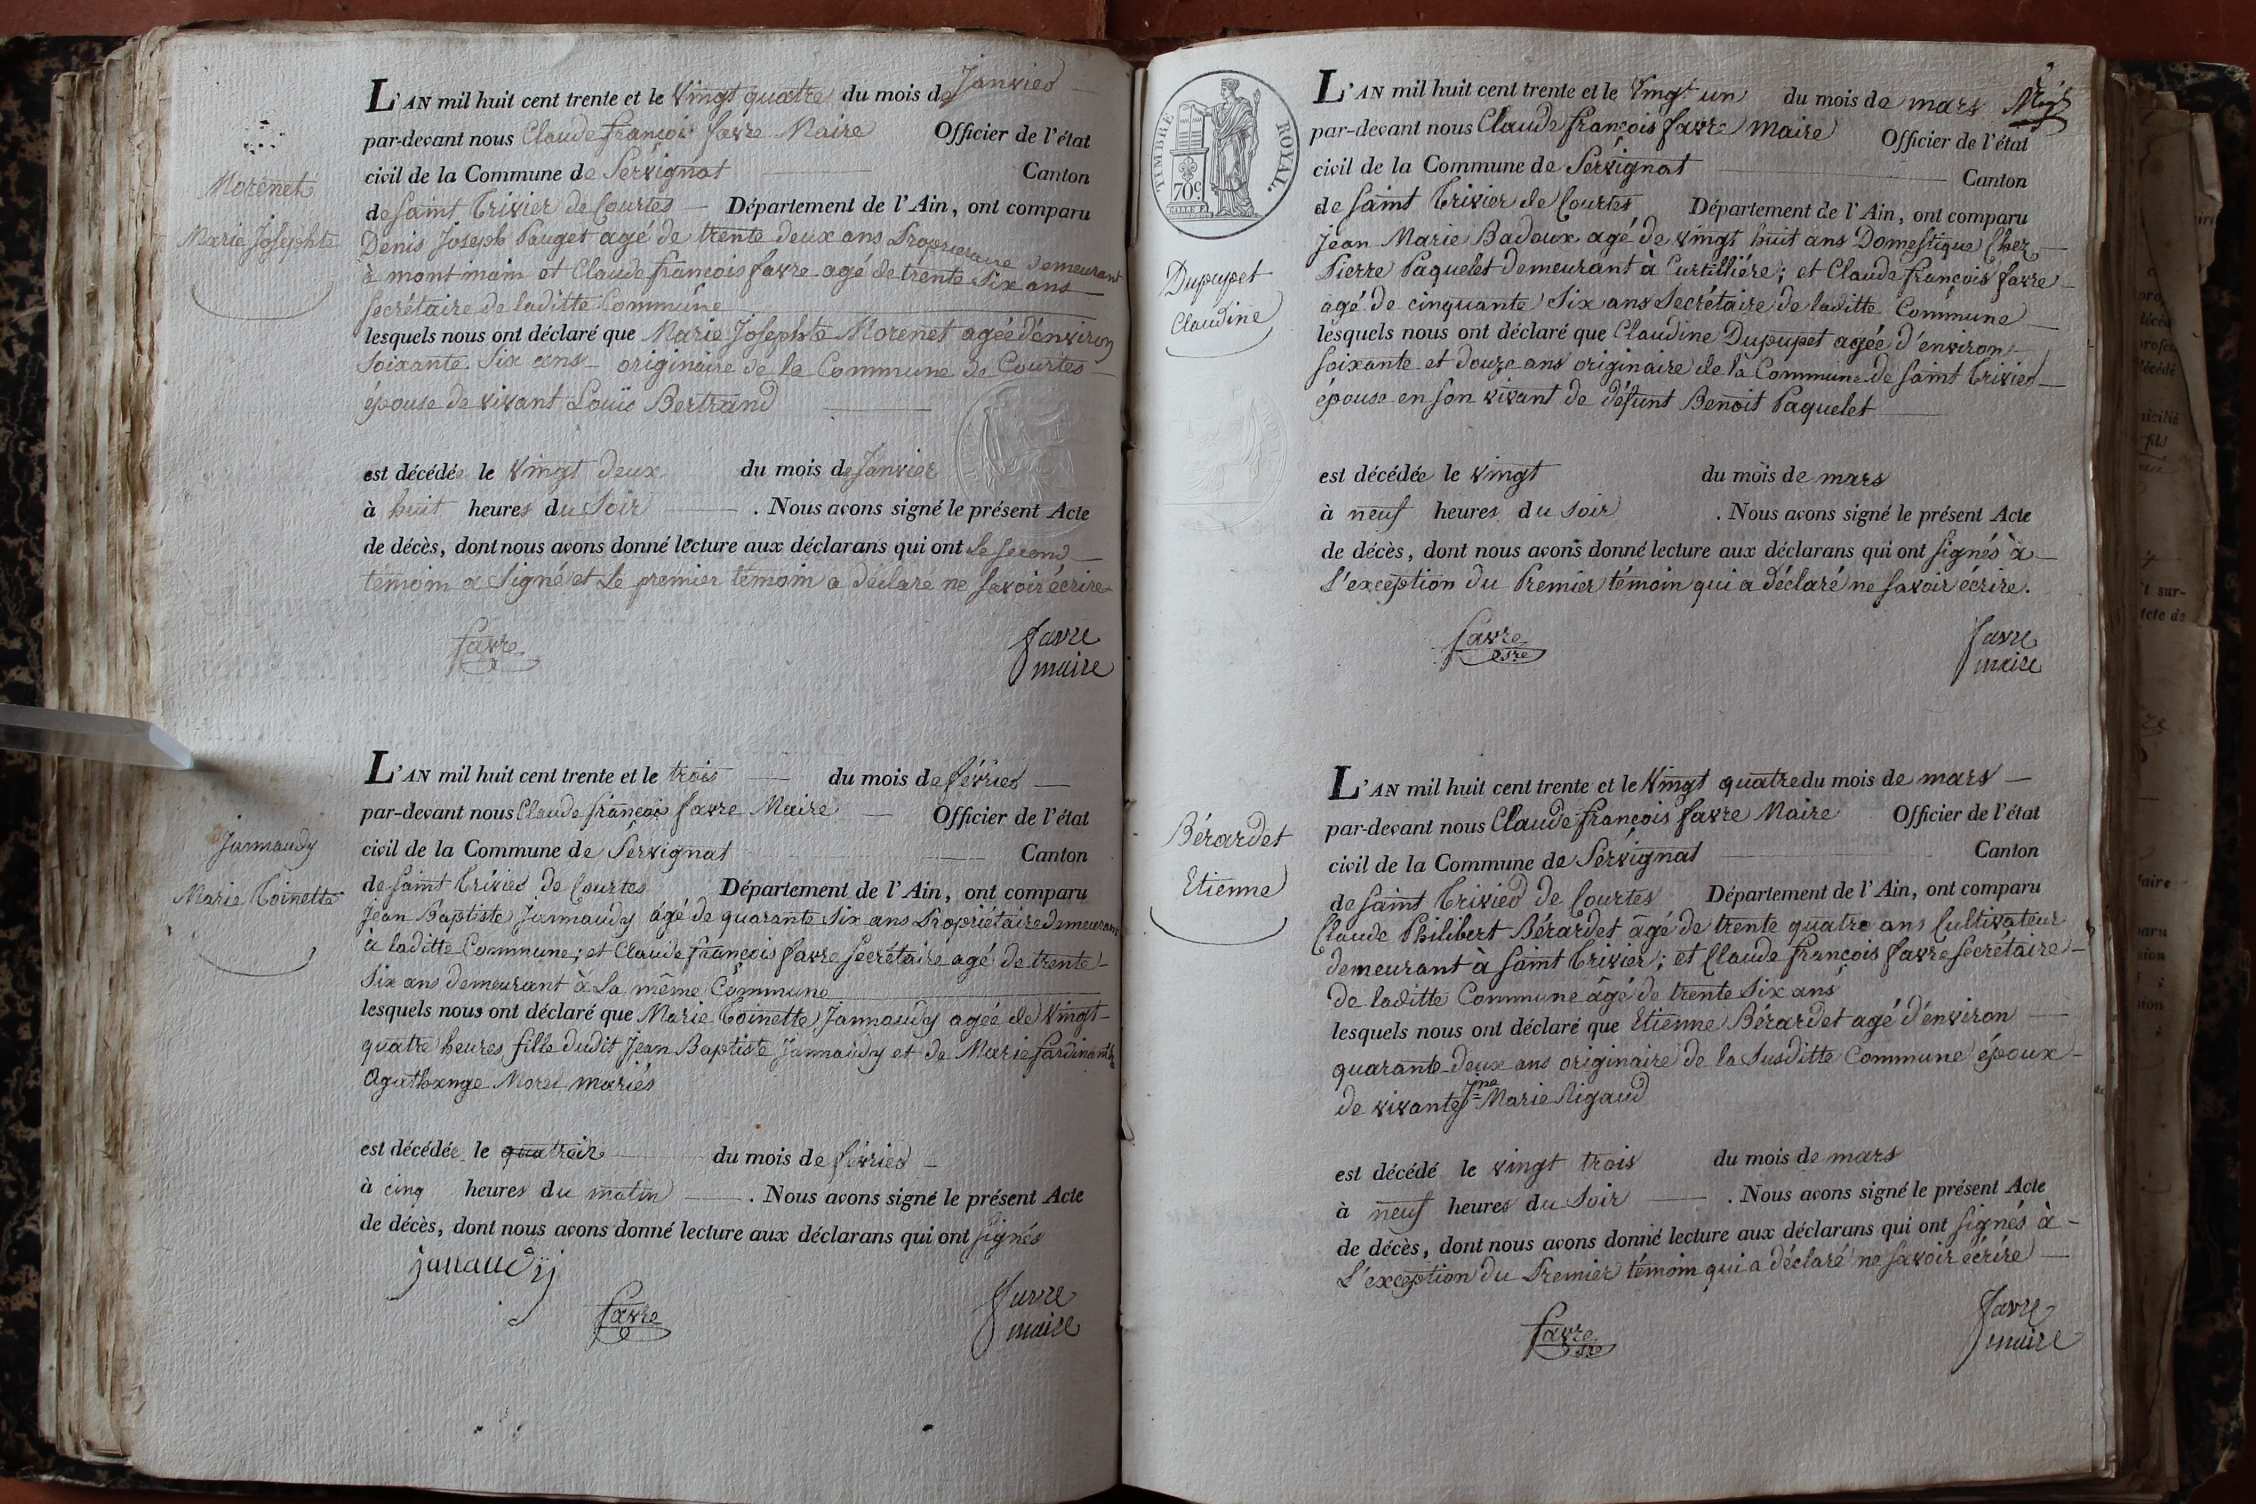 Morenet
Marie Josephte
L'AN mil huit cent trente et le Vingt quatre du mois de Janvier
par-devant nous Claude françois favre Maire Officier de l'état
civil de la Commune de Servignat Canton
de saint Trivier de Courtes Département de l'Ain, ont comparu
Denis Joseph Pauget agé de trente deux ans Propriétaire demeurant
à montmain et Claude françois favre agé de trente Six ans
secrétaire de laditte Commune
lesquels nous ont déclaré que Marie Josephte Morenet agée d'environ
Soixante Six ans originaire de la Commune de Courtes
épouse de vivant Louis Bertrand
est décédée le Vingt deux du mois de Janvier
à huit heures du Soir . Nous avons signé le présent Acte
de décès, dont nous avons donné lecture aux déclarans qui ont le second
témoin a Signé et Le premier témoin a déclaré ne savoir écrire
favre
favre
maire
Jannaudy
Marie Toinette
L'AN mil huit cent trente et le trois du mois de février
par-devant nous Claude françois favre Maire Officier de l'état
civil de la Commune de Servignat Canton
de saint Trivier de Courtes Département de l'Ain, ont comparu
Jean Baptiste Jannaudy âgé de quarante Six ans Propriétaire demeurant
à laditte Commune; et Claude françois favre secrétaire agé de trente
Six ans demeurant à La même Commune
lesquels nous ont déclaré que Marie Toinette Jannaudy agée de Vingt
quatre heures fille dudit Jean Baptiste Jannaudy et de Marie
Morel mariés
est décédée le du mois de février
à cinq heures du matin . Nous avons signé le présent Acte
de décès, dont nous avons donné lecture aux déclarans qui ont signés
janaudy
favre
favre
maire
TIMBRE ROYAL
70c.
Dupupet
Claudine
L'AN mil huit cent trente et le Vingt un du mois de mars
par-devant nous Claude françois favre maire Officier de l'état
civil de la Commune de Servignat Canton
de saint Trivier de Courtes Département de l'Ain, ont comparu
Jean Marie Badoux agé de vingt huit ans Domestique Chez
Pierre Paquelet demeurant à Curtillière; et Claude françois favre
agé de cinquante Six ans Secrétaire de laditte Commune
lesquels nous ont déclaré que Claudine Dupupet agée d'environ
soixante et douze ans originaire de la Commune de saint Trivier
épouse en son vivant de défunt Benoit Paquelet
est décédée le vingt du mois de mars
à neuf heures du soir . Nous avons signé le présent Acte
de décès, dont nous avons donné lecture aux déclarans qui ont signés à
L'exception du Premier témoin qui a déclaré ne savoir écrire.
favre
sre
favre
maire
Bérardet
Etienne
L'AN mil huit cent trente et le Vingt quatre du mois de mars
par-devant nous Claude françois favre Maire Officier de l'état
civil de la Commune de Servignat Canton
de saint Trivier de Courtes Département de l'Ain, ont comparu
Claude Philibert Bérardet âgé de trente quatre ans Cultivateur
demeurant à saint Trivier; et Claude françois favre secrétaire
de laditte Commune âgé de trente Six ans
lesquels nous ont déclaré que Etienne Bérardet agé d'environ
quarante deux ans originaire de la Susditte Commune époux
de vivante Jne Marie Rigaud
est décédé le vingt trois du mois de mars
à neuf heures du Soir . Nous avons signé le présent Acte
de décès, dont nous avons donné lecture aux déclarans qui ont signés à
L'exception du Premier témoin qui a déclaré ne savoir écrire
favre
sre
favre
maire